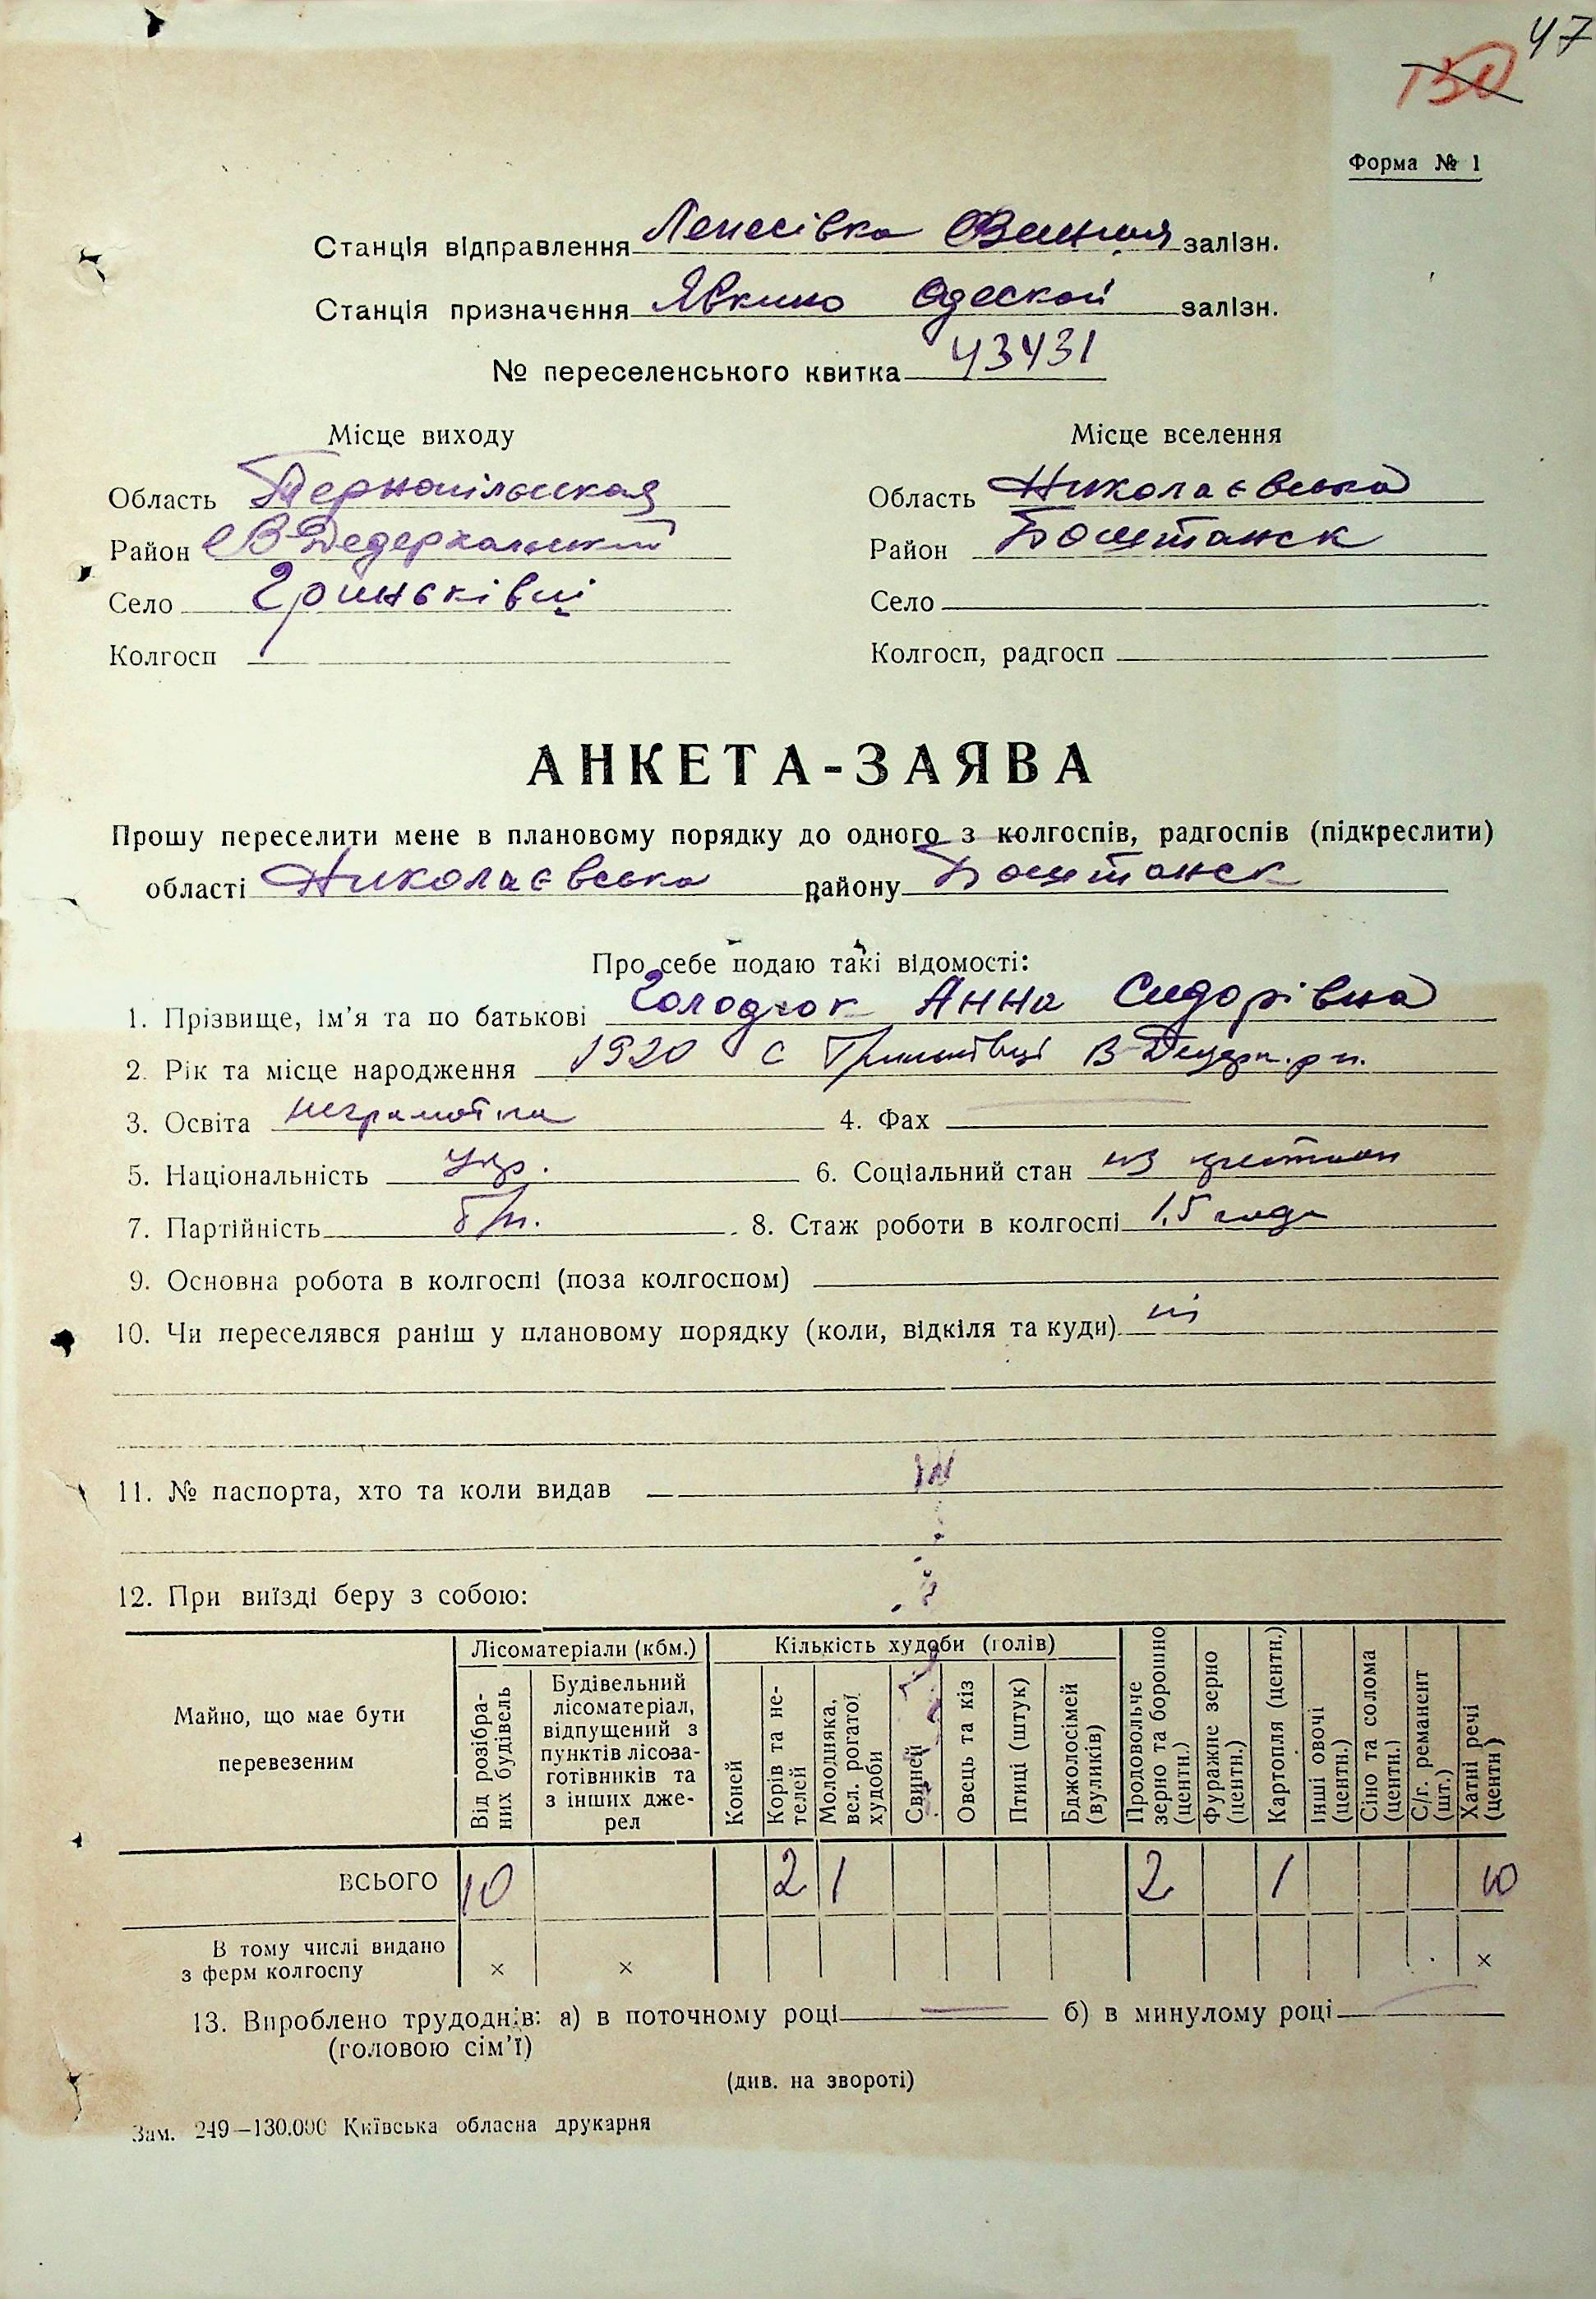 47
130
Форма № 1
Станція відправлення Ленесівка залізн.
Станція призначення Явкино Одеской залізн.
№ переселенського квитка 43431
Місце виходу Місце вселення
Область Тернопільская Область Николаєвська
Район В Дедеркальський Район Боштанск
Село Гриньківці Село
Колгосп Колгосп, радгосп
АНКЕТА-ЗАЯВА
Прошу переселити мене в плановому порядку до одного з колгоспів, радгоспів (підкреслити)
області Николаєвська району Боштанск
Про себе подаю такі відомості:
1. Прізвище, ім'я та по батькові Голодюк Анна Сидорівна
2. Рік та місце народження 1920 с Гриньківці В-Дедерк. р-н.
3. Освіта неграмотна 4. Фах
5. Національність укр. 6. Соціальний стан из крестьян
7. Партійність б/п. 8. Стаж роботи в колгоспі 1,5 года
9. Основна робота в колгоспі (поза колгоспом)
10. Чи переселявся раніш у плановому порядку (коли, відкіля та куди) ні
11. № паспорта, хто та коли видав
12. При виїзді беру з собою:
Майно, що має бути перевезеним
Лісоматеріали (кбм.)
Від розібраних будівель
Будівельний лісоматеріал, відпущений з пунктів лісозаготівників та з інших джерел
Кількість худоби (голів)
Коней
Корів та нетелей
Молодняка, вел. рогатої худоби
Свиней
Овець та кіз
Птиці (штук)
Бджолосімей (вуликів)
Продовольче зерно та борошно (центн.)
Фуражне зерно (центн.)
Картопля (центн.)
Інші овочі (центн.)
Сіно та солома (центн.)
С/г. реманент (шт.)
Хатні речі (центн)
ВСЬОГО 10 2 1 2 1 10
В тому числі видано з ферм колгоспу × × ×
13. Вироблено трудоднів: а) в поточному році б) в минулому році
(головою сім'ї)
(див. на звороті)
Зам. 249—130.000 Київська обласна друкарня